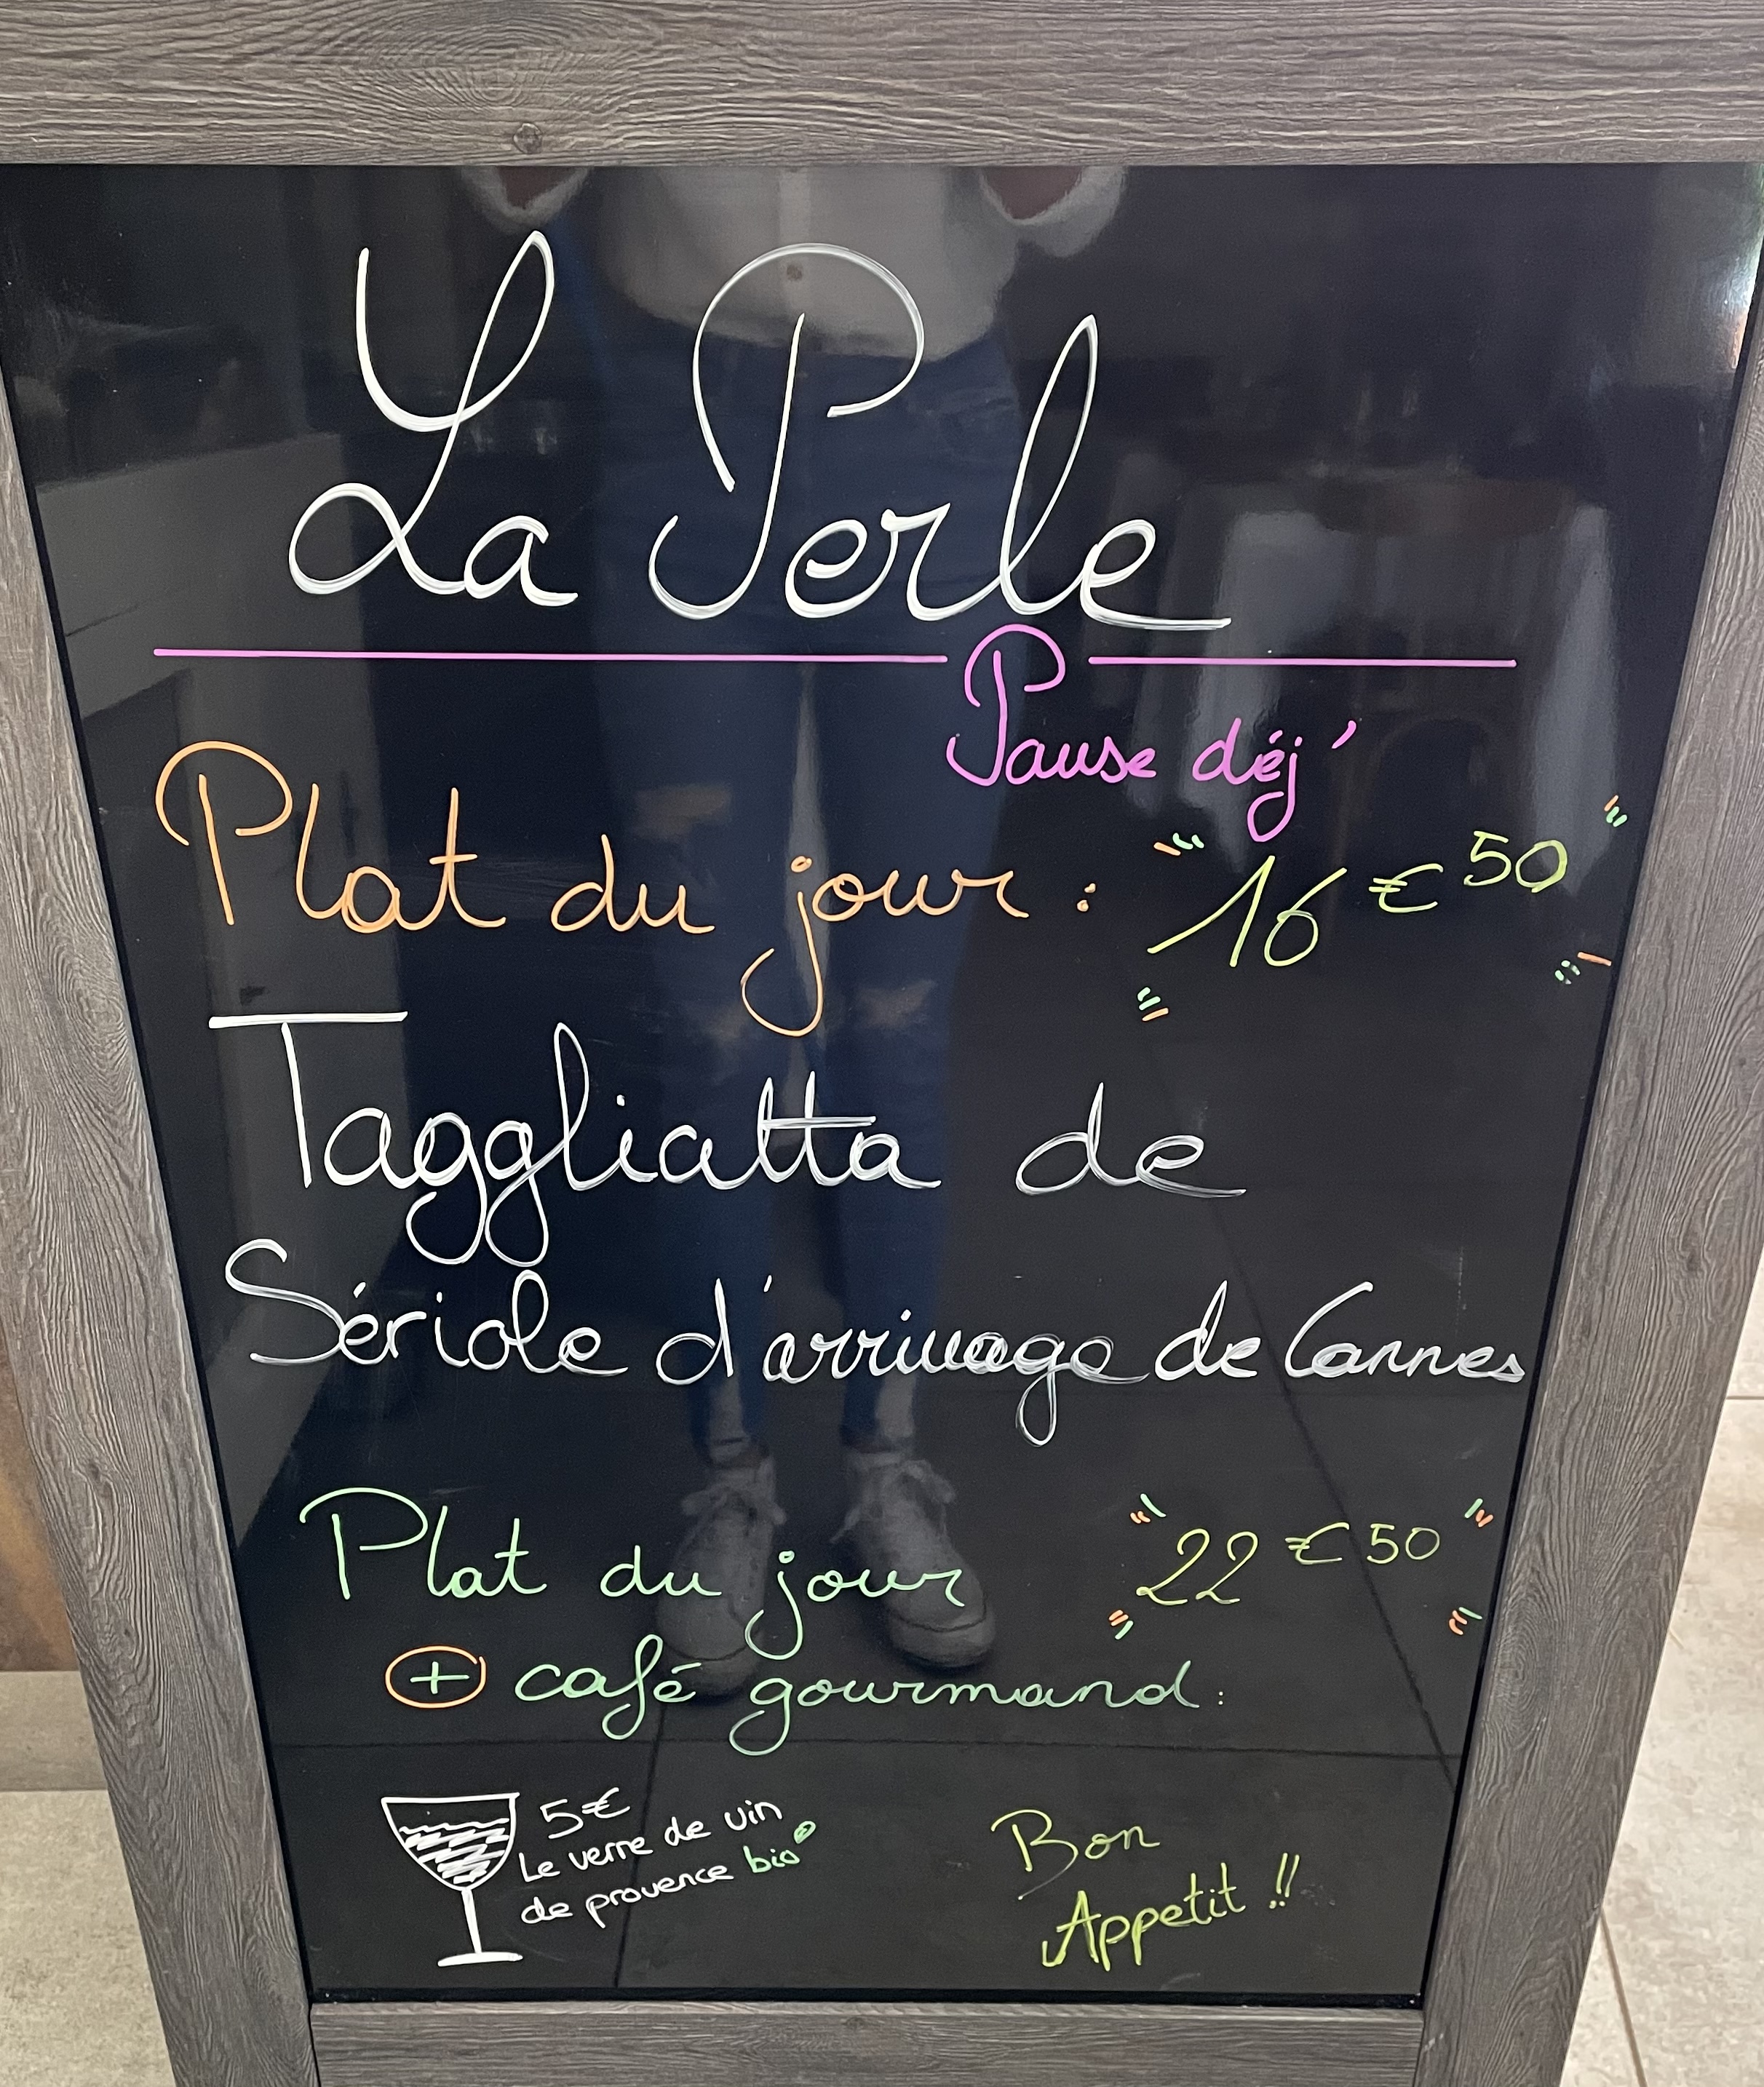 La Perle
Pause déj'
Plat du jour : 16€50
Taggliatta de
Sériole d'arrivage de Cannes
Plat du jour 22€50
+ café gourmand :
5€
Le verre de vin
de provence bio
Bon
Appetit !!